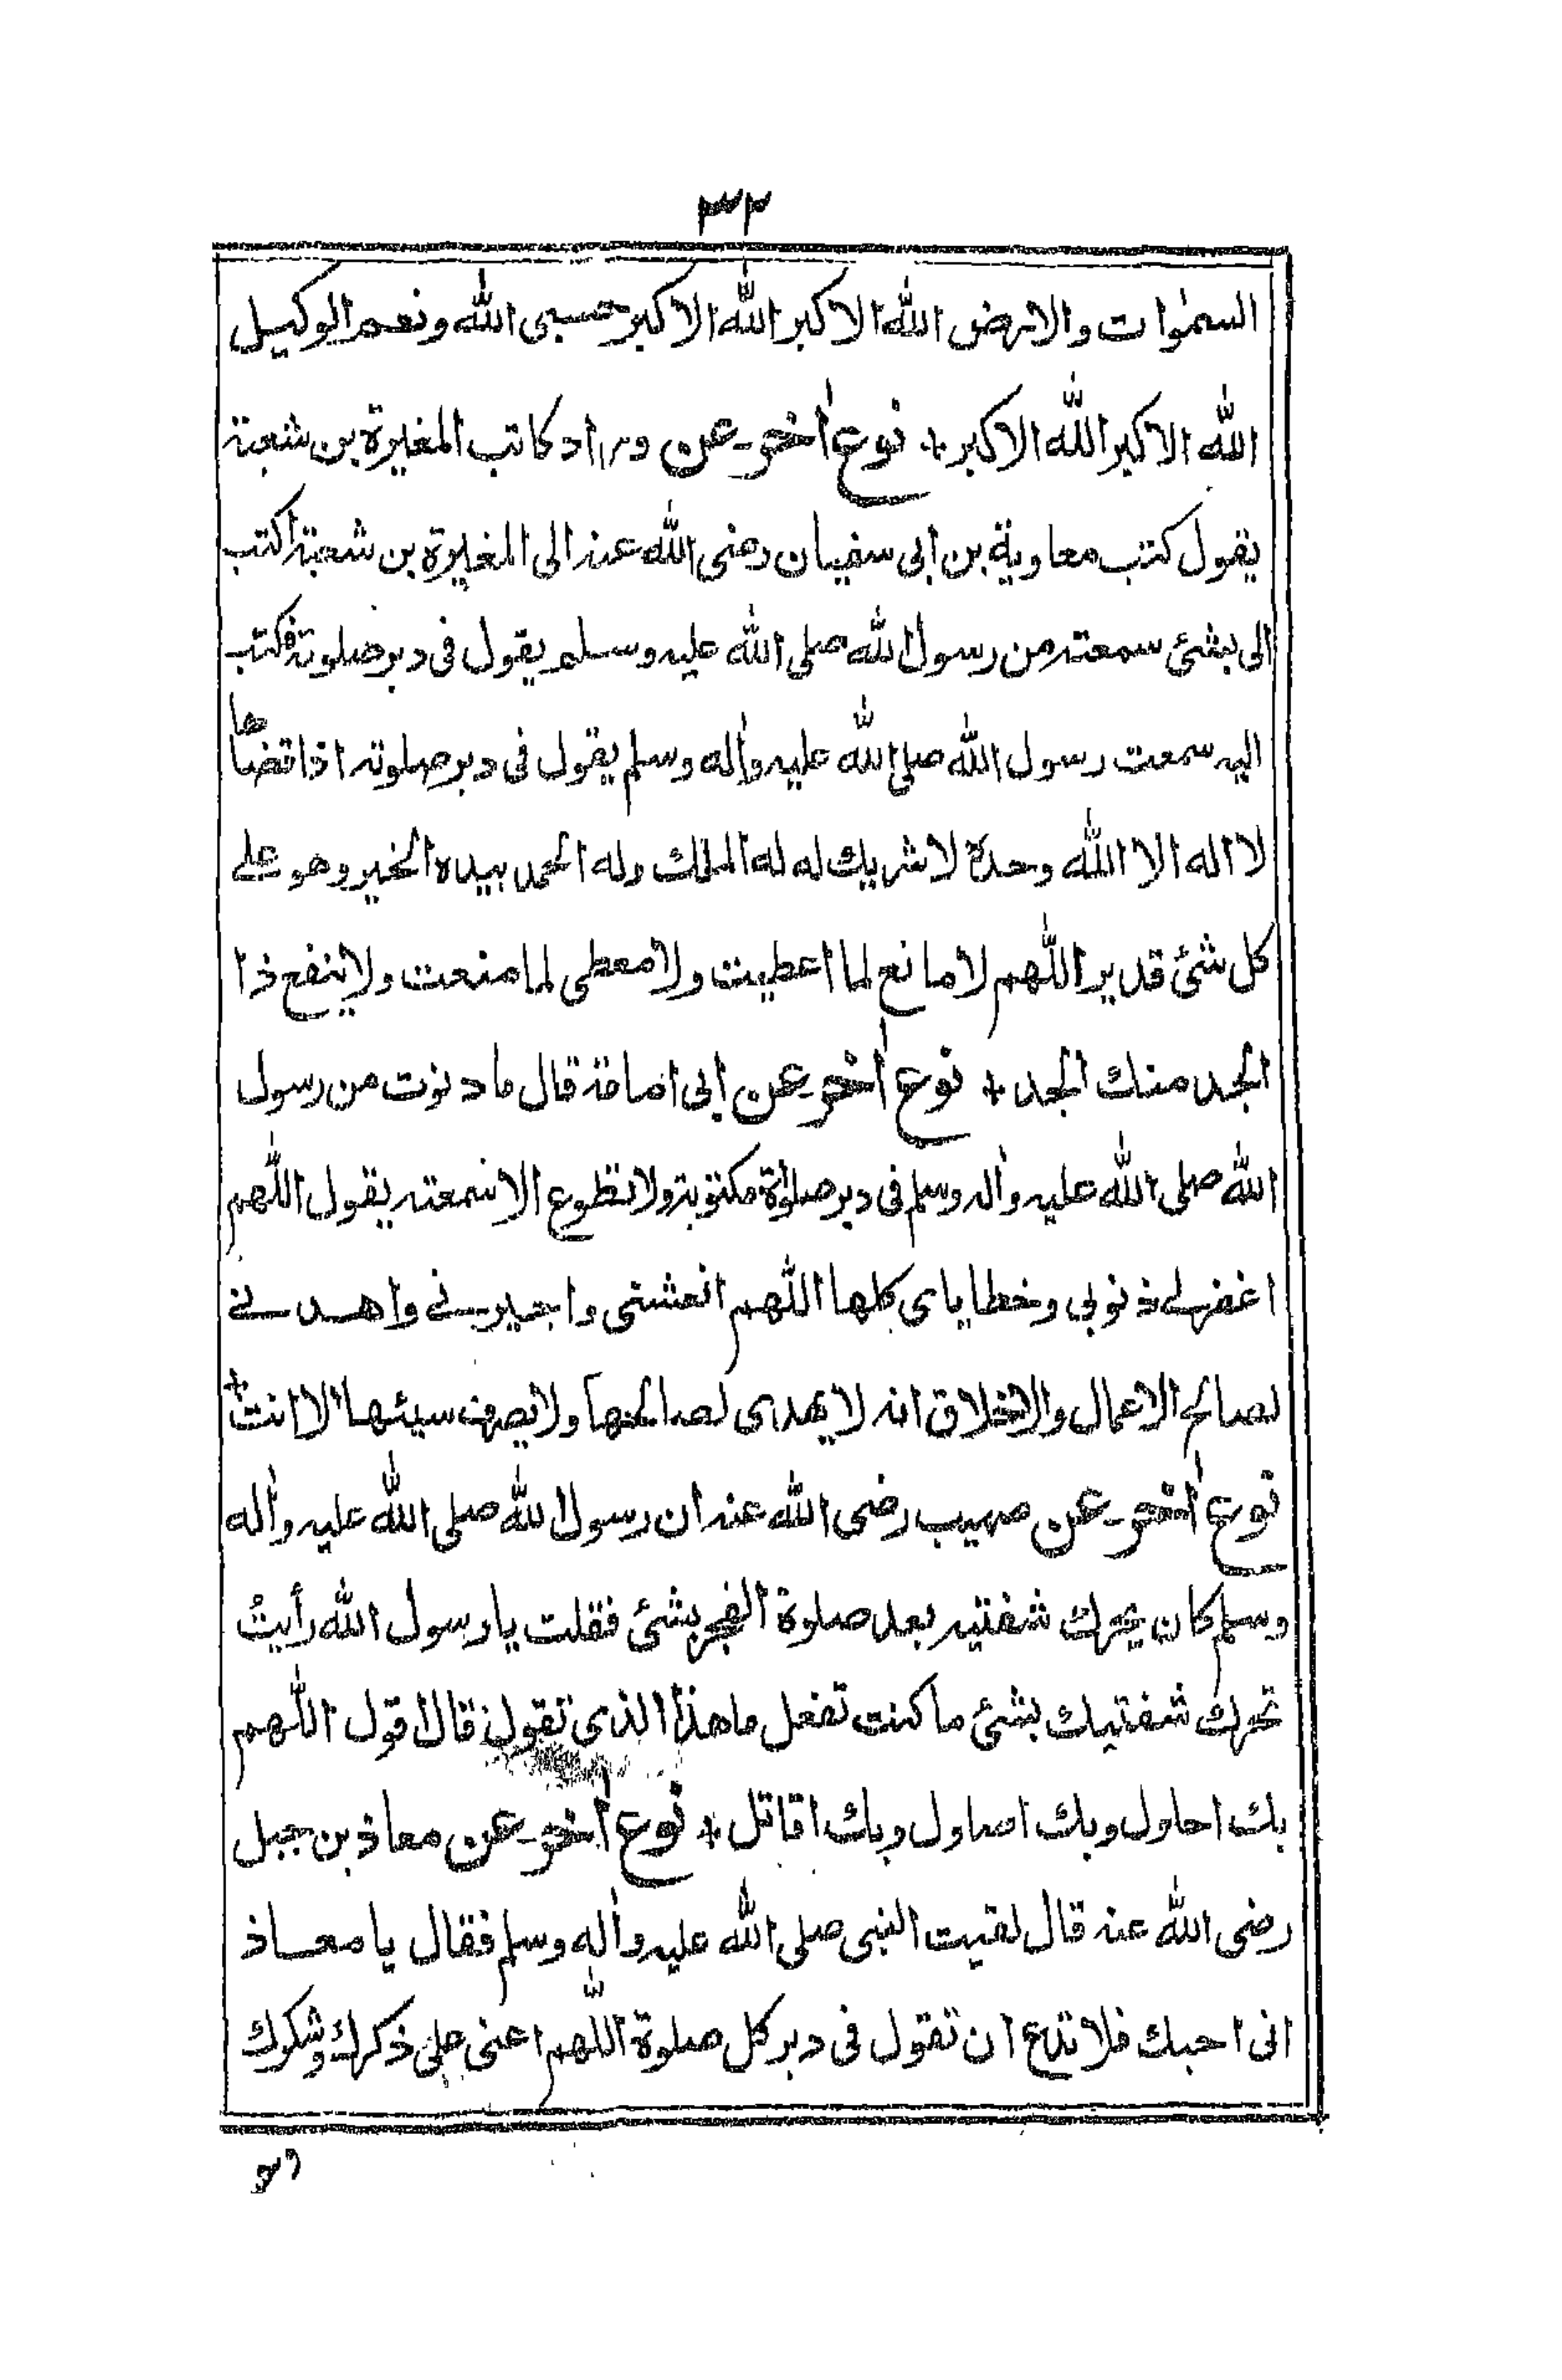 ٣٢
السمٰوات والارض الله الاكبر الله الاكبر حسبى الله ونعم الوكيل
الله الاكبر الله الاكبر + نوع اٰخر عن وراد كاتب المغيرة بن شعبة
يقول كتب معاوية بن ابى سفيان رضى الله عنه الى المغيرة بن شعبة اكتب
الى بشئ سمعته من رسول الله صلى الله عليه وسلم يقول فى دبر صلوته فكتب
اليه سمعت رسول الله صلى الله عليه واٰله وسلم يقول فى دبر صلوته اذا قضاها
لا اله الا الله وحدة لا شريك له له الملك وله الحمد بيده الخير وهو على
كل شئ قدير اللّٰهم لا مانع لما اعطيت ولا معطى لما منعت ولا ينفع ذا
الجد منك الجد + نوع اٰخر عن ابى امامة قال ما دنوت من رسول
الله صلى الله عليه واٰله وسلم فى دبر صلوٰة مكتوبة ولا تطوع الا سمعته يقول اللّٰهم
اغفر لى ذنوبى وخطاياى كلها اللّٰهم انعشنى واجبرنى واهدنى
لصالح الاعمال والاخلاق انه لا يهدى لصالحها ولا يصرف سيئها الا انت +
نوع اٰخر عن صهيب رضى الله عنه ان رسول الله صلى الله عليه واٰله
وسلم كان يحرك شفتيه بعد صلوة الفجر بشئ فقلت يا رسول الله رأيتُ
تحرك شفتيك بشئ ما كنت تفعل ما هذا الذى تقول قال اقول اللّٰهم
بك احاول وبك اصاول وبك اقاتل + نوع اٰخر عن معاذ بن جبل
رضى الله عنه قال لقيت النبى صلى الله عليه واٰله وسلم فقال يا معاذ
انى احبك فلا تدع ان تقول فى دبر كل صلوة اللّٰهم اعنى على ذكرك وشكرك